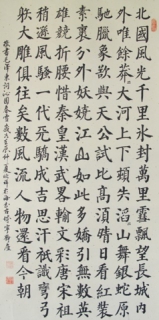 北國風光千里冰封萬里雪飄望長城內
外唯餘莽々大河上下頓失滔山舞銀蛇原
馳臘象欲與天公試比高須晴日看紅裝
素裹分外妖嬈江山如此多嬌引無數英
雄競折腰惜秦皇漢武略輸文彩唐宋祖
稍遜風騷一代天驕成吉思汗祇識彎弓
射大雕俱往矣數風流人物還看今朝
敬書毛澤東詞沁園春雪